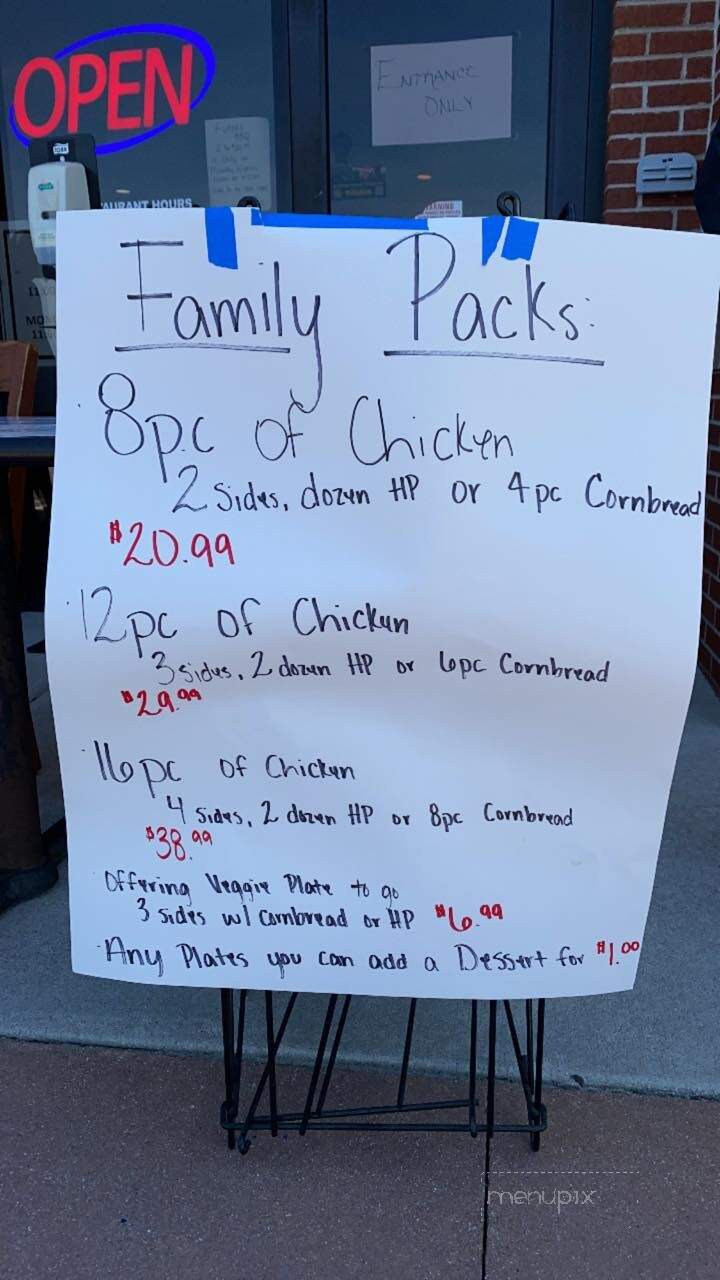 OPEN
ENTRANCE
ONLY
TORK
AURANT HOURS
Family Packs:
8pc of Chicken
2 Sides, dozen HP or 4pc Cornbread
$20.99
12pc of Chicken
3 sides, 2 dozen HP or 6pc Cornbread
$29.99
16pc of Chicken
4 sides, 2 dozen HP or 8pc Cornbread
$38.99
Offering Veggie Plate to go
3 sides w/ Cornbread or HP $6.99
Any Plates you can add a Dessert for $1.00
menupix